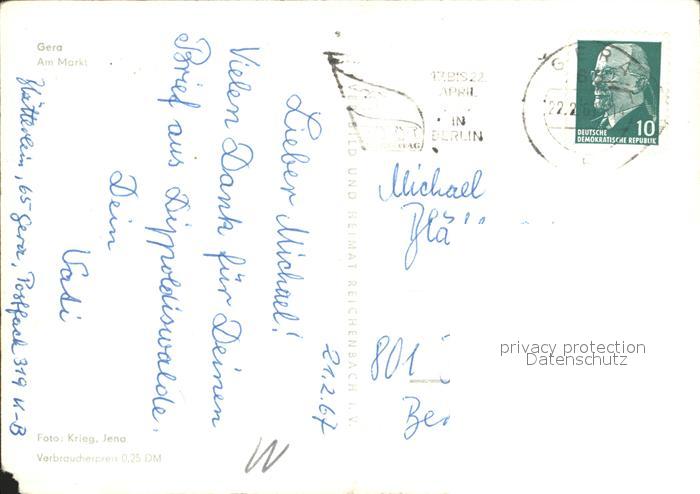 Gera
Am Markt
21.2.67
Lieber Michael!
Vielen Dank für Deinen
Brief aus Dippoldiswalde.
Dein
Vati
65 Gera, Postfach 319 K-B
Foto: Krieg, Jena
Verbraucherpreis 0,25 DM
VERLAG BILD UND HEIMAT REICHENBACH I. V.
17. BIS 22.
APRIL
IN
BERLIN
GERA
22.2.6
DEUTSCHE
DEMOKRATISCHE REPUBLIK
10
Michael
Blä
801
privacy protection
Datenschutz
W